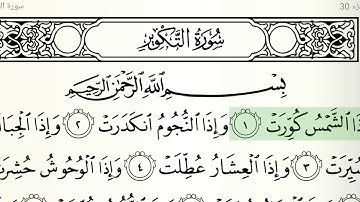 جزء 30 سورة
سُورَةُ التَّكْوِيرِ
بِسْمِ اللَّهِ الرَّحْمَٰنِ الرَّحِيمِ
ذَا الشَّمْسُ كُوِّرَتْ ١ وَإِذَا النُّجُومُ انكَدَرَتْ ٢ وَإِذَا الْجِبَا
سُيِّرَتْ ٣ وَإِذَا الْعِشَارُ عُطِّلَتْ ٤ وَإِذَا الْوُحُوشُ حُشِرَتْ